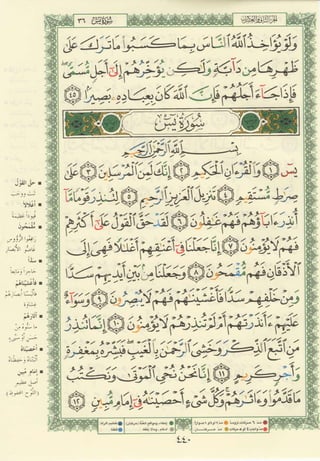 الجزء الثاني والعشرون ٣٦ سورة يس
وَلَوْ يُؤَاخِذُ ٱللَّهُ ٱلنَّاسَ بِمَا كَسَبُوا۟ مَا تَرَكَ عَلَىٰ
ظَهْرِهَا مِن دَآبَّةٍ وَلَٰكِن يُؤَخِّرُهُمْ إِلَىٰٓ أَجَلٍ مُّسَمًّى
فَإِذَا جَآءَ أَجَلُهُمْ فَإِنَّ ٱللَّهَ كَانَ بِعِبَادِهِۦ بَصِيرًۢا ٤٥
سُورَةُ يسٓ
بِسْمِ ٱللَّهِ ٱلرَّحْمَٰنِ ٱلرَّحِيمِ
يسٓ ١ وَٱلْقُرْءَانِ ٱلْحَكِيمِ ٢ إِنَّكَ لَمِنَ ٱلْمُرْسَلِينَ ٣ عَلَىٰ
صِرَٰطٍ مُّسْتَقِيمٍ ٤ تَنزِيلَ ٱلْعَزِيزِ ٱلرَّحِيمِ ٥ لِتُنذِرَ قَوْمًا مَّآ
أُنذِرَ ءَابَآؤُهُمْ فَهُمْ غَٰفِلُونَ ٦ لَقَدْ حَقَّ ٱلْقَوْلُ عَلَىٰٓ أَكْثَرِهِمْ
فَهُمْ لَا يُؤْمِنُونَ ٧ إِنَّا جَعَلْنَا فِىٓ أَعْنَٰقِهِمْ أَغْلَٰلًا فَهِىَ إِلَى
ٱلْأَذْقَانِ فَهُم مُّقْمَحُونَ ٨ وَجَعَلْنَا مِنۢ بَيْنِ أَيْدِيهِمْ سَدًّا
وَمِنْ خَلْفِهِمْ سَدًّا فَأَغْشَيْنَٰهُمْ فَهُمْ لَا يُبْصِرُونَ ٩ وَسَوَآءٌ
عَلَيْهِمْ ءَأَنذَرْتَهُمْ أَمْ لَمْ تُنذِرْهُمْ لَا يُؤْمِنُونَ ١٠ إِنَّمَا تُنذِرُ
مَنِ ٱتَّبَعَ ٱلذِّكْرَ وَخَشِىَ ٱلرَّحْمَٰنَ بِٱلْغَيْبِ فَبَشِّرْهُ بِمَغْفِرَةٍ
وَأَجْرٍ كَرِيمٍ ١١ إِنَّا نَحْنُ نُحْىِ ٱلْمَوْتَىٰ وَنَكْتُبُ
مَا قَدَّمُوا۟ وَءَاثَٰرَهُمْ وَكُلَّ شَىْءٍ أَحْصَيْنَٰهُ فِىٓ إِمَامٍ مُّبِينٍ ١٢
حق القول
ثبت ووجب
أغلالا
قيودا عظيمة
مقمحون
سدا
حاجزا ومانعا
فأغشيناهم
آثارهم
أحصيناه
إمام مبين
٤٤٠